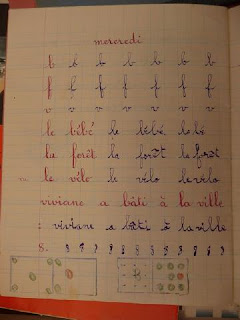 mercredi
b b b b b b b
f f f f f f f
v v v v v v v
le bébé le bébé le bébé
la forêt la forêt la forêt
le vélo le vélo le vélo
viviane a bâti à la ville
: viviane a bâti à la ville
8. 8 8 8 8 8 8 8 8 8 8 8 8